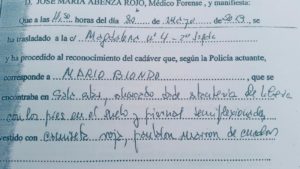 D. JOSÉ MARÍA ABENZA ROJO, Médico Forense, y manifiesta:
Que a las 11.30 horas del día 30 de Mayo de 2013, se
ha trasladado a la c/ Magdalena nº 4 - 2º
y ha procedido al reconocimiento del cadáver que, según la Policía actuante,
corresponde a MARIO BIONDO, que se
encontraba en Sala estar, desde estantería de librería
con los pies en el suelo y piernas semiflexionadas
vestido con camiseta roja, pantalón marrón de cuadros